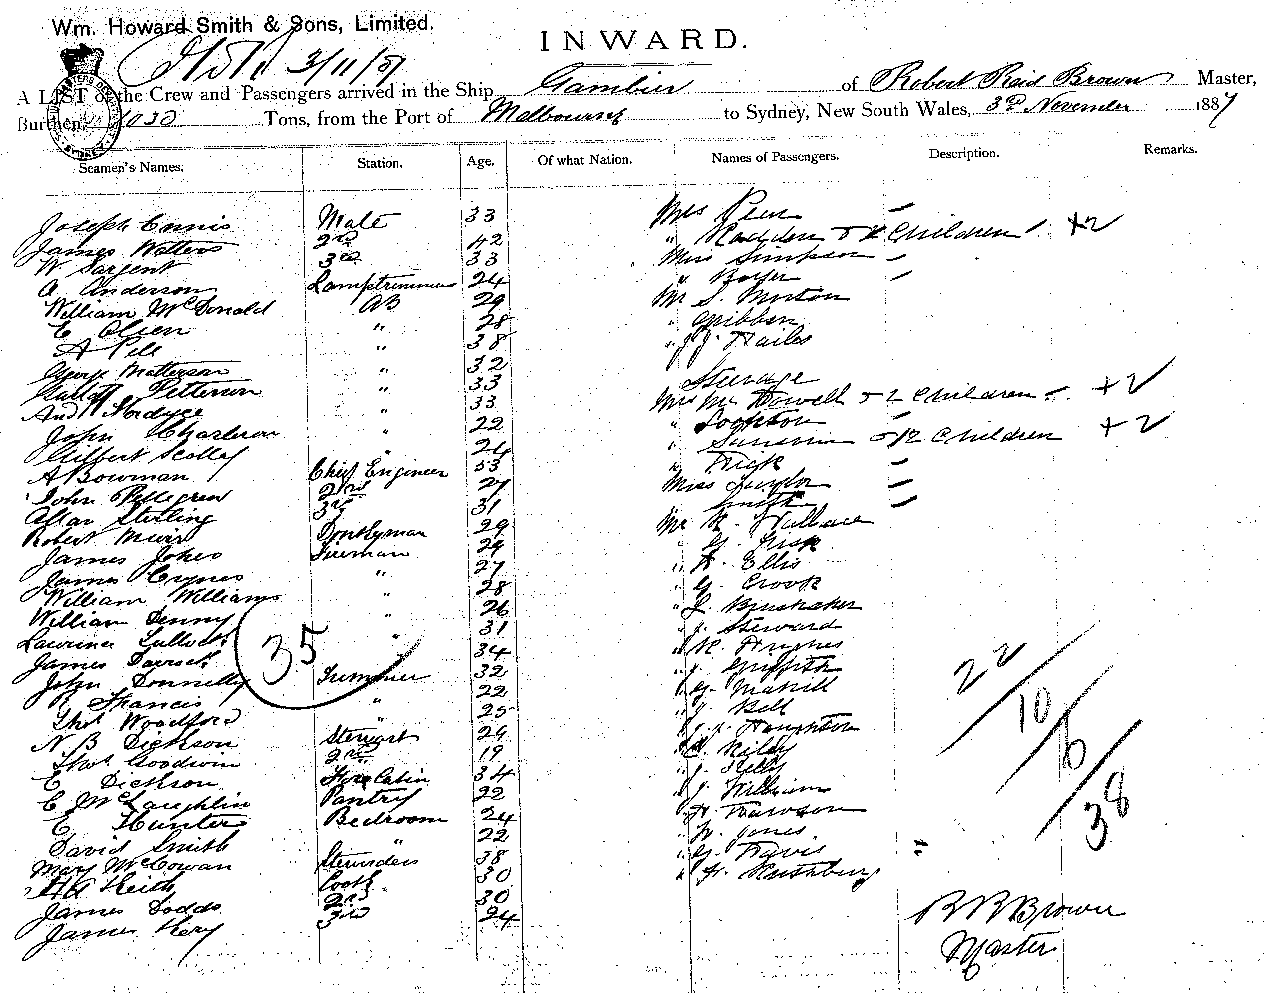 Wm. Howard Smith & Sons, Limited.
INWARD.
3/11/87
A LIST of the Crew and Passengers arrived in the Ship Gambier of Robert Reid Brown Master,
Burthen 1030 Tons, from the Port of Melbourne to Sydney, New South Wales, 3rd November 1887
Seamen's Names. Station. Age. Of what Nation. Names of Passengers. Description. Remarks.
Joseph Ennis Mate 33 Mrs Pear
James Watters 2nd 42 " & 2 Children +2
W Sargent 3rd 33 Miss Simpson
A Anderson Lamptrimmer 24 "
William McDonald AB 29 Mr S. Morton
C Olsen " 28 " Gribben
A Pell " 38 " J.J. Hailes
George Matterson " 32 Steerage
Petterson " 33 Mrs & 2 Children +2
And Fordyce " 33 "
John Charleson " 22 " & 2 Children +2
Gilbert Scollay " 24 " Frick
A Bowman Chief Engineer 53 Miss Taylor
John Pellegren 2nd 27 " Smith
Allan Sterling 3rd 31 Mr R. Wallace
Robert Muir Donkyman 29 " G. Fisk
James Jokes Fireman 29 " H. Ellis
James Crynes " 27 " G. Crook
William Williams " 28 " J. Brushaker
William Denny " 26 " J. Steward
Lawrence Tulloch " 31 " R. Hughes
James Darroch " 34 " J. Griffith
John Donnelly Trimmer 32 " G. Mahill
R Francis " 22 " J. Bell
Thos Woodford " 25 " Haughton
N. B. Dickson Stewart 29 " Riley
Thos Goodwin 2nd 19 " J. Kelly
E Dickson Fore Cabin 34 " J. William
C McLaughlin Pantry 22 " H. Rawson
E Hunter Bedroom 24 " W. Jones
David Smith " 22 " G. Travis
Mary McCowan Stewardess 38 " H. Rathburg
H A Keith Cook 30
James Dodds 2nd 30
James Kery 3rd 24
35
22/10/6/38
R R Brown
Master